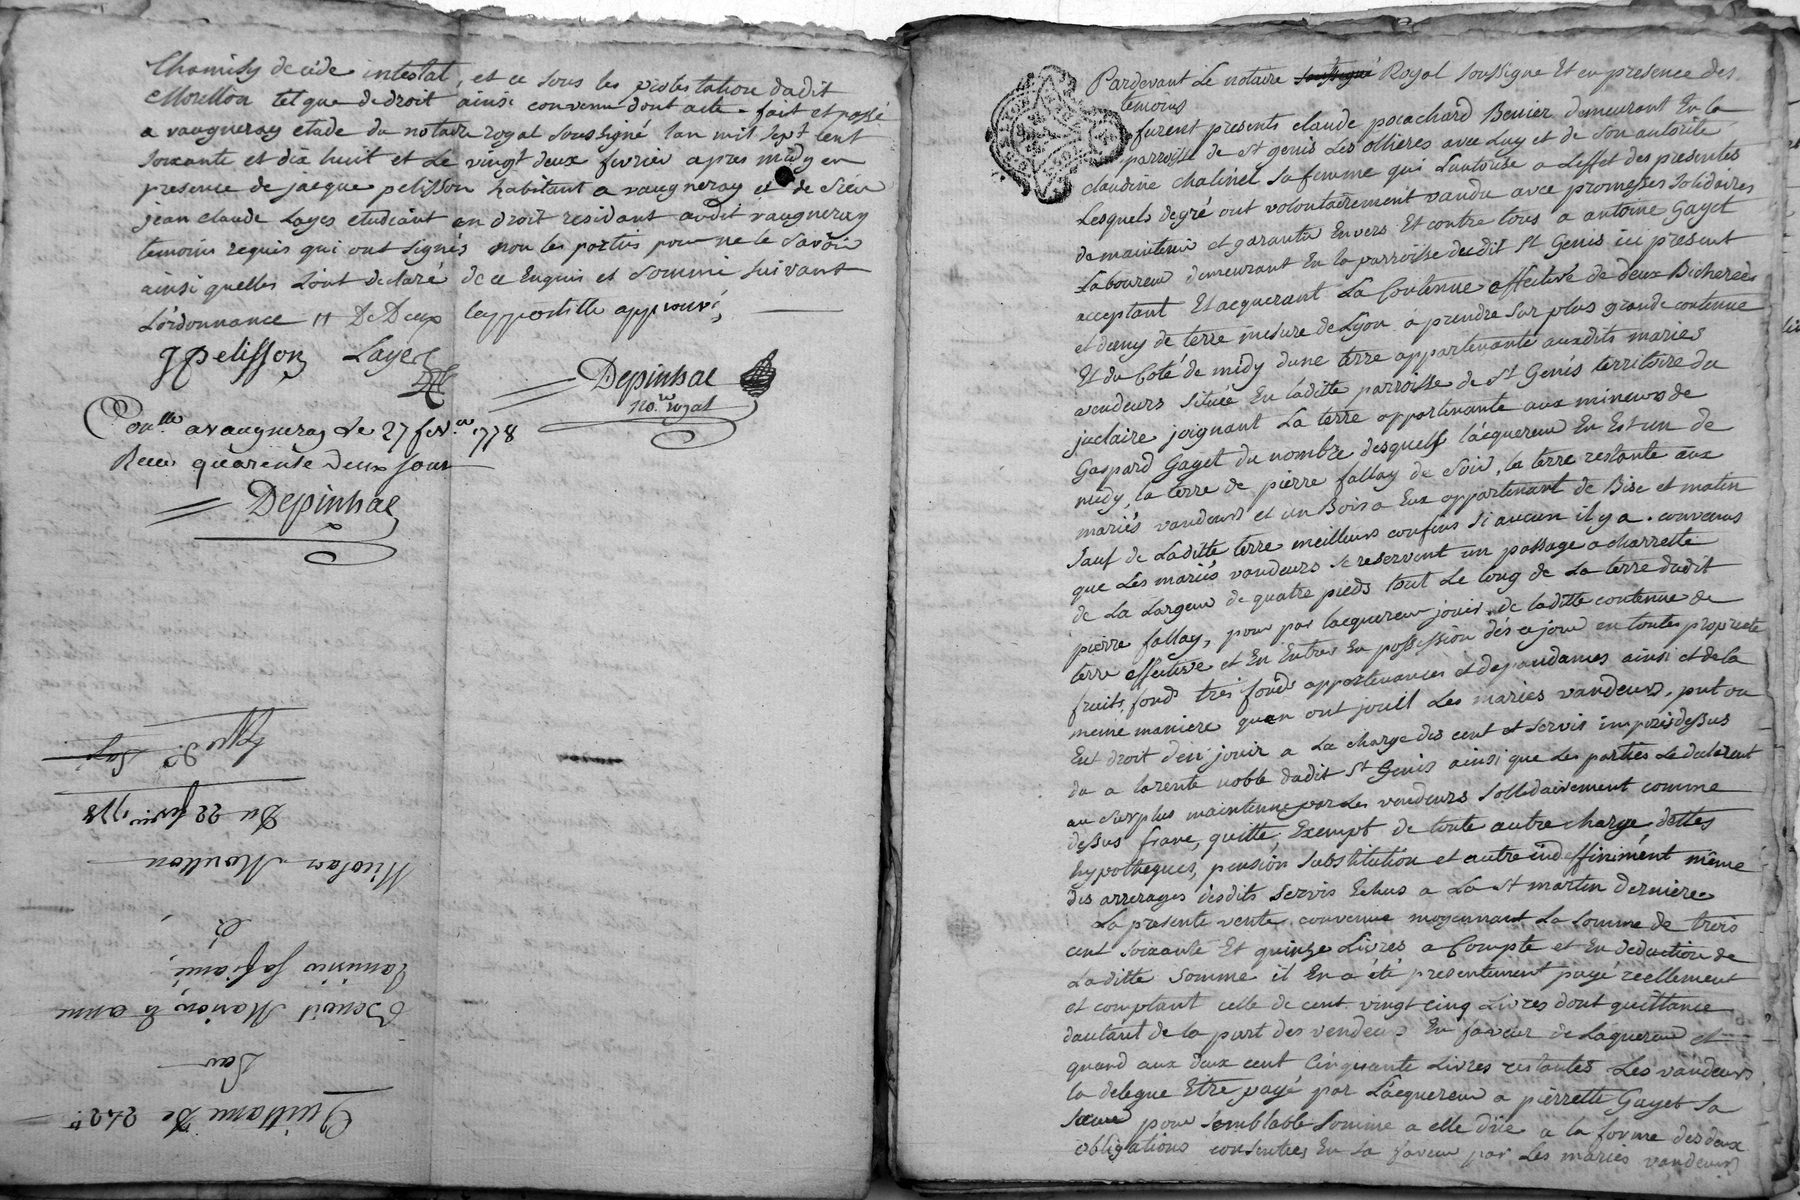 Chamisy decede intestat, et ce sous les protestations dudit
Morellon tel que de droit ainsi convenu dont acte. fait et passé
a vaugneray etude du notaire royal soussigné lan mil sept cent
soixante et dix huit et Le vingt deux fevrier apres midy en
presence de jacque pelisson habitant a vaugneray et de Sieu
jean claude Layes etudiant en droit residant audit vaugneray
temoins requis qui ont signés non les parties pour ne le savoir
ainsi quelles l'ont declaré de ce Enquis et sommé suivant
L'ordonnance 11 De Deux lappostille approuvé,
JPelisson Layes
Depinhac
no.re royal
Con.lle a vaugneray Le 27 fev.er 1778
Recu quarente deux sous
Depinhac
Quittance De 242#
Par
Benoit Marion, & anne

&
Nicolas Morellon
Du 22 fevrier 1778

Pardevant Le notaire soussigné Royal soussigne Et en presence des
temoins
furent presents claude pocachard Benier demeurant En la
parroisse de St genis Les ollieres avec Luy et de Son autorité
claudine chalinel sa femme qui L'autorise a Leffet des presentes
Lesquels degré ont volontairement vandu avec promesses solidaires
de maintenir et garantir Envers Et contre tous a antoine Gayet
Laboureur demeurant En la parroisse dudit St Genis ici present
acceptant Et acquerant La Contenue effective de deux Bicherées
et demy de terre mesure de Lyon a prendre sur plus grande contenue
Et du Coté de midy d'une terre appartenante auxdits mariés
vendeurs située En laditte parroisse de St Genis territoire du
juclaire joignant La terre appartenante aux mineurs de
Gaspard Gayet du nombre desquels l'acquereur En Est un de
midy, la terre de pierre fallay de Soir, la terre restante aux
mariés vandeurs et un Bois a Eux appartenant de Bise et matin
Sauf de Laditte terre meilleurs confins si aucun il y a. convenus
que Les mariés vandeurs se reservent un passage a charrette
de La Largeur de quatre pieds tout Le long de La terre dudit
pierre fallay, pour par lacquereur jouir de laditte contenue de
terre effective et En Entrer En possession dés ce jour en toutes propriete
fruits, fond tres fonds appartenances et depandances ainsi et de la
meme maniere quen ont jouil Les mariés vandeurs, put ou
Eut droit d'en jouir a La charge des cent et servis imposés dessus
du a larente noble dudit St Genis ainsi que Les parties Le declarent
au surplus maintenue par Les vendeurs sollidairement comme
dessus franc, quitte, Exempt de toute autre charge dettes
hypotheques, pension substitution et autre indeffiniment même
des arrerages desdits servis Echus a La St martin derniere
La presente vente convenue moyennant La somme de trois
cent soixante Et quinze Livres a Compte et En deduction de
Laditte somme il En a été presentement payé reellement
et comptant celle de cent vingt cinq Livres dont quittance
dautant de la part des vendeurs En faveur de Laquereur et
quand aux deux cent Cinquante Livres restantes Les vandeurs
la delegue Etre payé par L'acquereur a pierrette Gayet sa
sœur pour semblable somme a elle düe a la forme des deux
obligations consenties En sa faveur par Les mariés vandeurs